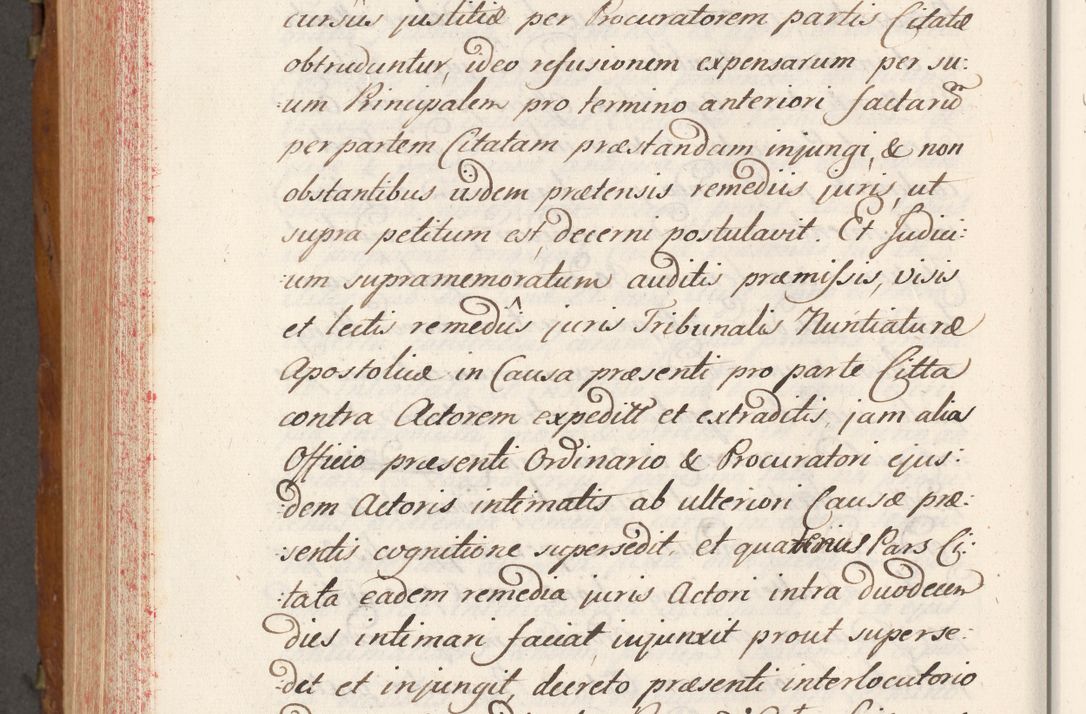 cursus justitiæ per Procuratorem partis Citatæ
obtruduntur, ideo refusionem expensarum per su:
:um Principalem pro termino anteriori factarũ
per partem Citatam præstandam injungi, & non
obstantibus iisdem prætensis remediis juris, ut
supra petitum est, decerni postulavit. Et Judici:
:um supramemoratum auditis præmissis, visis
et lectis remediis juris Tribunalis Nuntiaturæ
Apostolicæ in Causa præsenti pro parte Citta
contra Actorem expeditt et extraditis, jam alias
Officio præsenti Ordinario & Procuratori ejus:
:dem Actoris intimatis ab ulteriori Causæ præ:
:sentis cognitione supersedit, et quatenus Pars Ci:
:tata eadem remedia juris Actori intra duodecem
dies intimari faciat injunxit prout superse:
:det et injungit, decreto præsenti interlocutorio